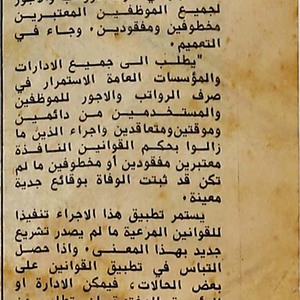 لجميع الموظفين المعتبرين
مخطوفين ومفقودين. وجاء في
التعميم.
"يطلب الى جميع الادارات
والمؤسسات العامة الاستمرار في
صرف الرواتب والاجور للموظفين
والمستخدمين من دائمين
وموقتين ومتعاقدين واجراء الذين ما
زالوا بحكم القوانين النافذة
معتبرين مفقودين أو مخطوفين ما لم
تكن قد ثبتت الوفاة بوقائع جدية
معينة.
يستمر تطبيق هذا الاجراء تنفيذا
للقوانين المرعية ما لم يصدر تشريع
جديد بهذا المعنى. واذا حصل
التباس في تطبيق القوانين على
بعض الحالات، فيمكن الادارة او